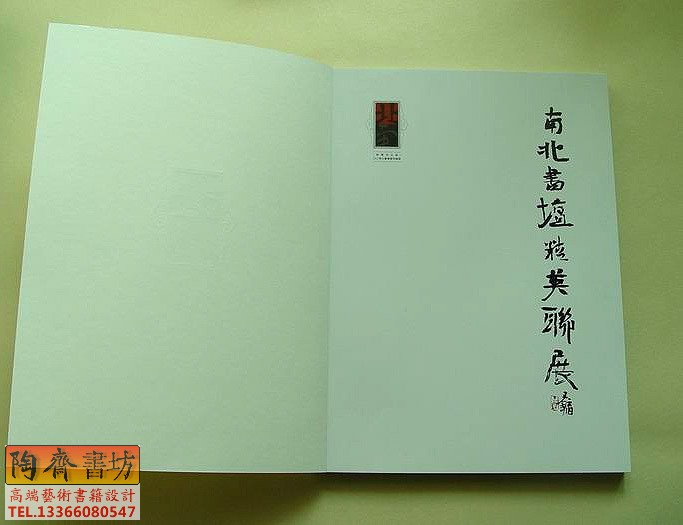 南北書壇精英聯展
陶齊書坊
高端藝術書籍設計
TEL.13366080547